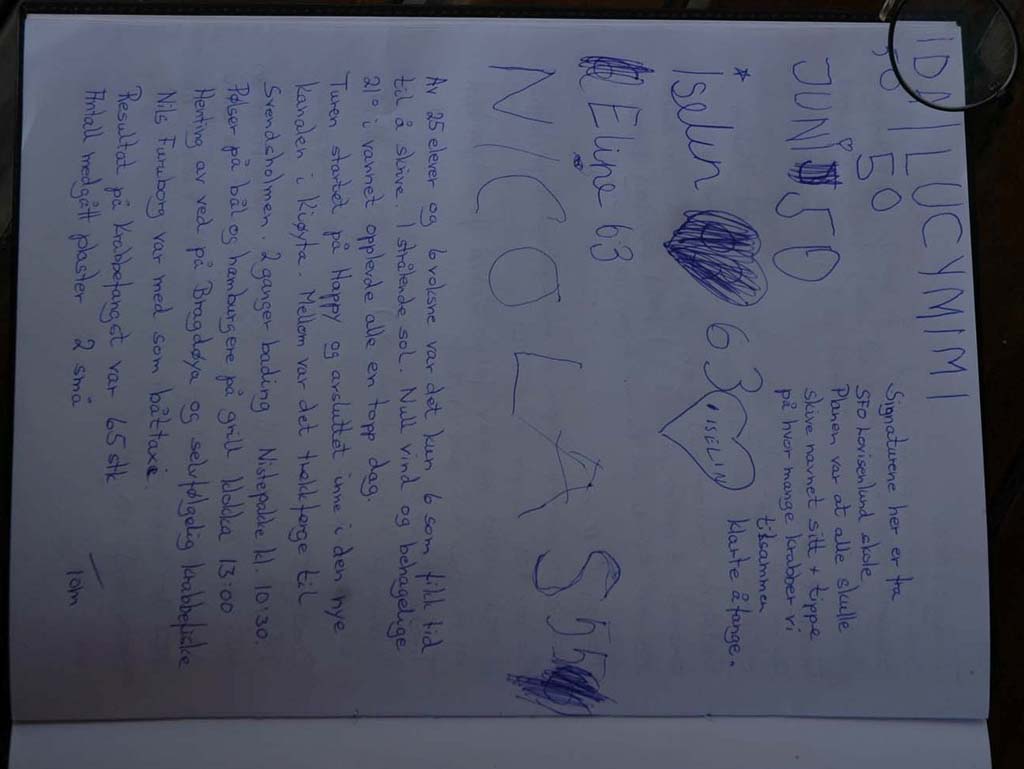 IDA LUCY MIMI
50
JUNI 50
Signaturene her er fra
SFO Lovisenlund skole.
Planen var at alle skulle
skive navnet sitt + tippe
på hvor mange krabber vi
tilsammen
klarte å fange.
* Iselin 63 ISELIN
Eline 63
NICOLAS 55
Av 25 elever og 6 voksne var det kun 6 som fikk tid
til å skrive. I strålende sol. Null vind og behagelige
21° i vannet opplevde alle en topp dag.
Turen startet på Happy og avsluttet inne i den nye
kanalen i Kvøyta. Mellom var det trekkferge til
Svendsholmen. 2 ganger bading. Nistepakke kl. 10:30.
Pølser på bål og hamburgere på grill klokka 13:00
Henting av ved på Bragdøya og selvfølgelig krabbefiske
Nils Furuborg var med som båttaxi.
Resultat på krabbefangst var 65 stk
Antall medgått plaster 2 små